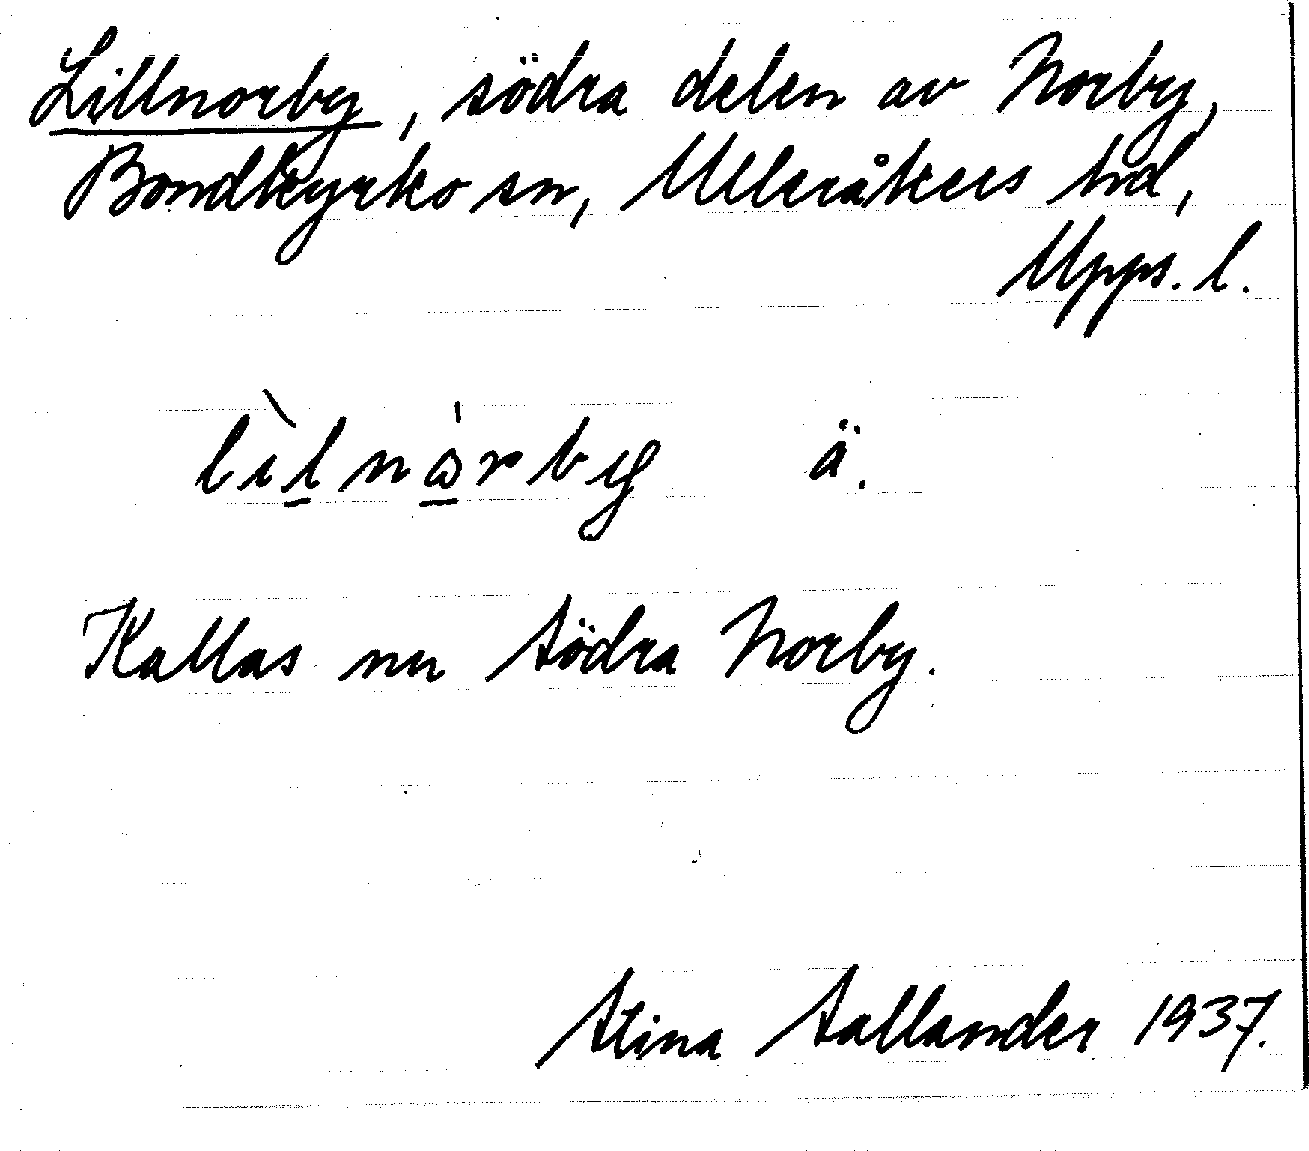 Lillnorby, södra delen av Norby,
Bondkyrko sn, Ulleråkers hd,
Upps. l.
lìl̠nɷ̠̀rby ä.
Kallas nu Södra Norby.
Stina Sallander 1937.